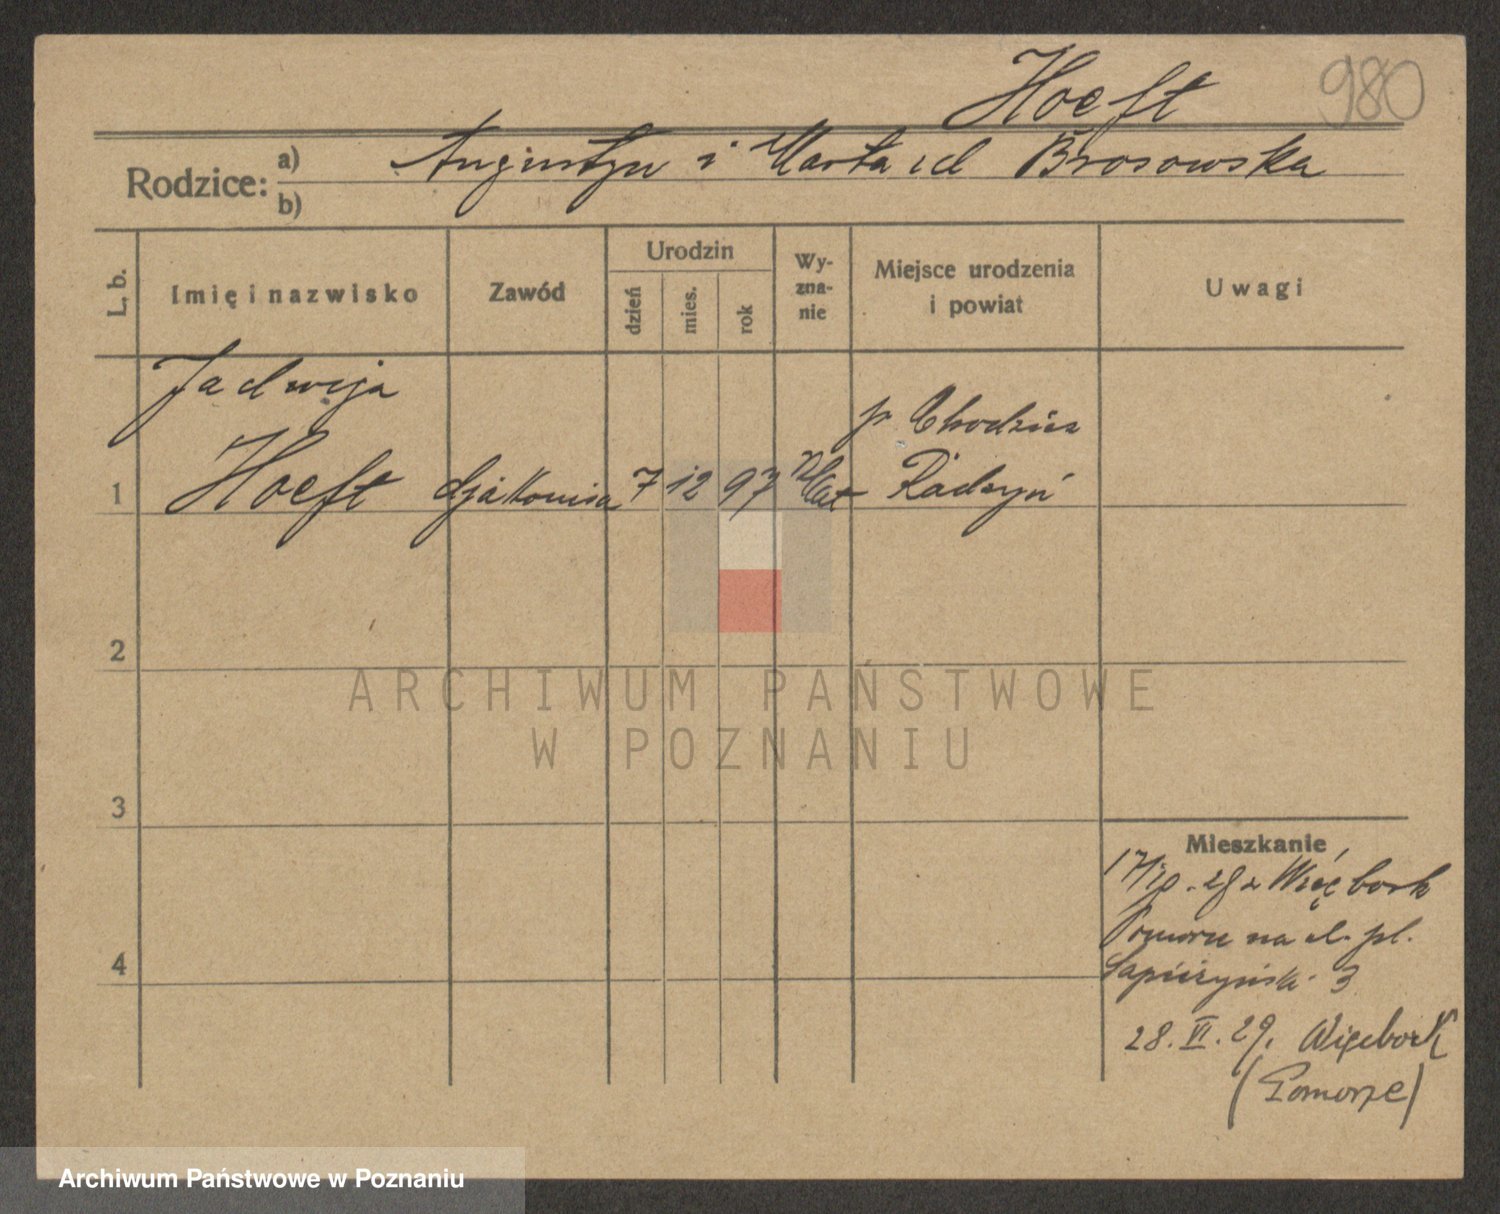 Hoeft
980
Rodzice:
a) Augustyn i Marta
b)
Brosowska
L. b.
Imię i nazwisko
Zawód
Urodzin
dzień
mies.
rok
Wy-
zna-
nie
Miejsce urodzenia
i powiat
Uwagi
Jadwiga
1 Hoeft djakonisa 7 12 97
p Chodzież
Radzyń
2
ARCHIWUM PAŃSTWOWE
W POZNANIU
3
4
Mieszkanie
28 z Więcbork
Pomorze na pl.
3
28. VI. 29. Więcbork
(Pomorze)
Archiwum Państwowe w Poznaniu